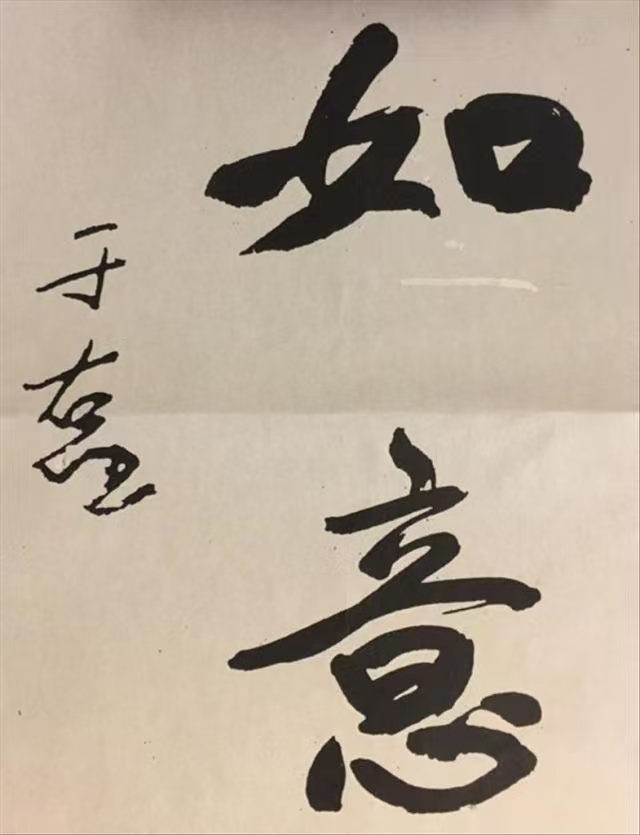 如意
于右任